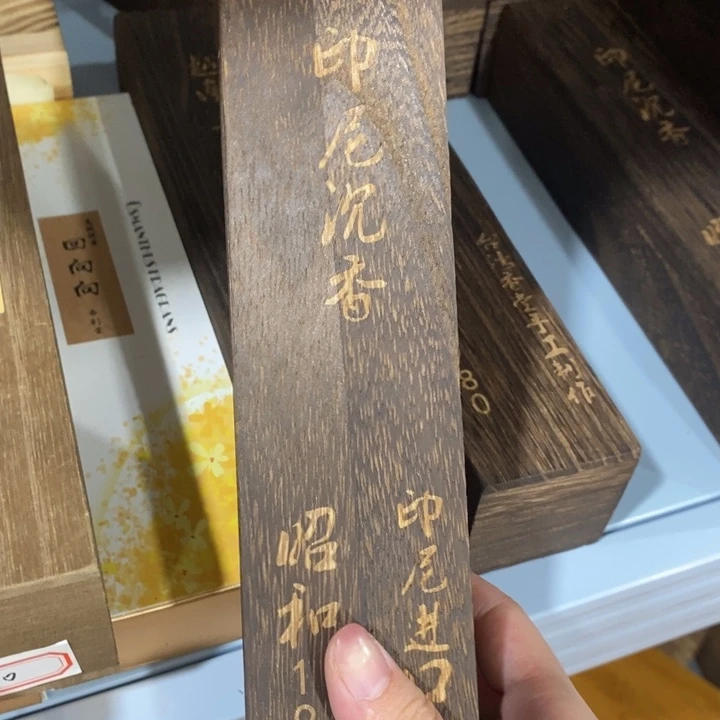 印尼沉香
印尼进口
昭和
印尼沉香
手工制作
80
OSMANTHUS FRAGRANS
回向向